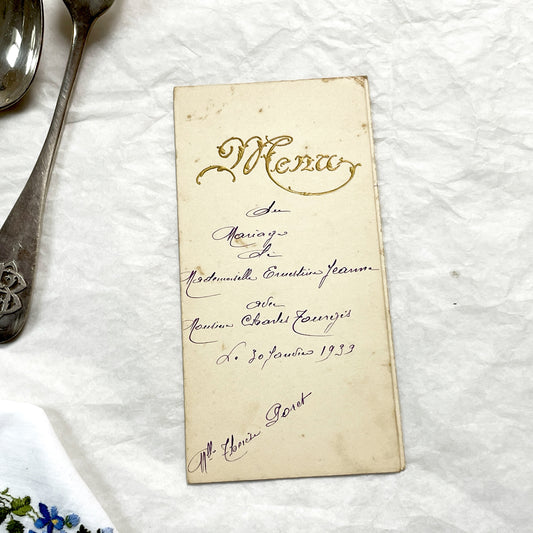 Menu
du
Mariage
de
Mademoiselle Ernestine Jeanne
avec
Monsieur Charles Tourgis
Le 30 Janvier 1933
Mlle Poret